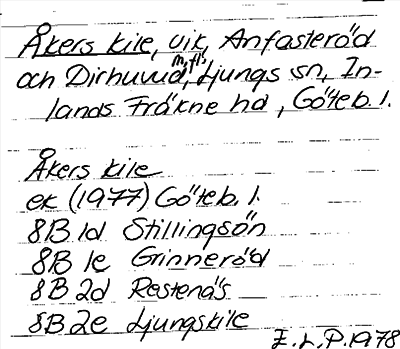 Åkers kile, vik, Anfasteröd
och Dirhuvud, m.fl., Ljungs sn, In-
lands Fräkne hd, Göteb. l.
Åkers kile
ek (1977) Göteb. l.
8B 1d Stillingsön
8B 1e Grinneröd
8B 2d Restenäs
8B 2e Ljungskile
E.L.P. 1978